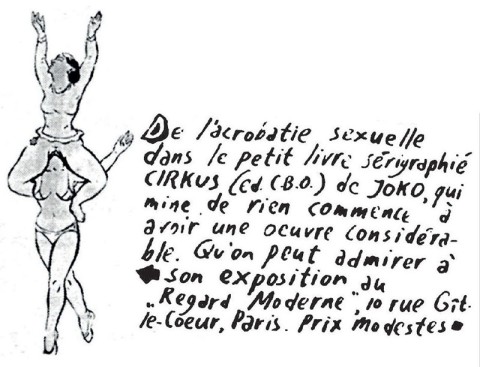 De l'acrobatie sexuelle
dans le petit livre sérigraphié
CIRKUS (Ed. C.B.O.) de JOKO, qui
mine de rien commence à
avoir une oeuvre considéra-
ble. Qu'on peut admirer à
son exposition au
"Regard Moderne", 10 rue Gît-
le-Coeur, Paris. Prix modestes